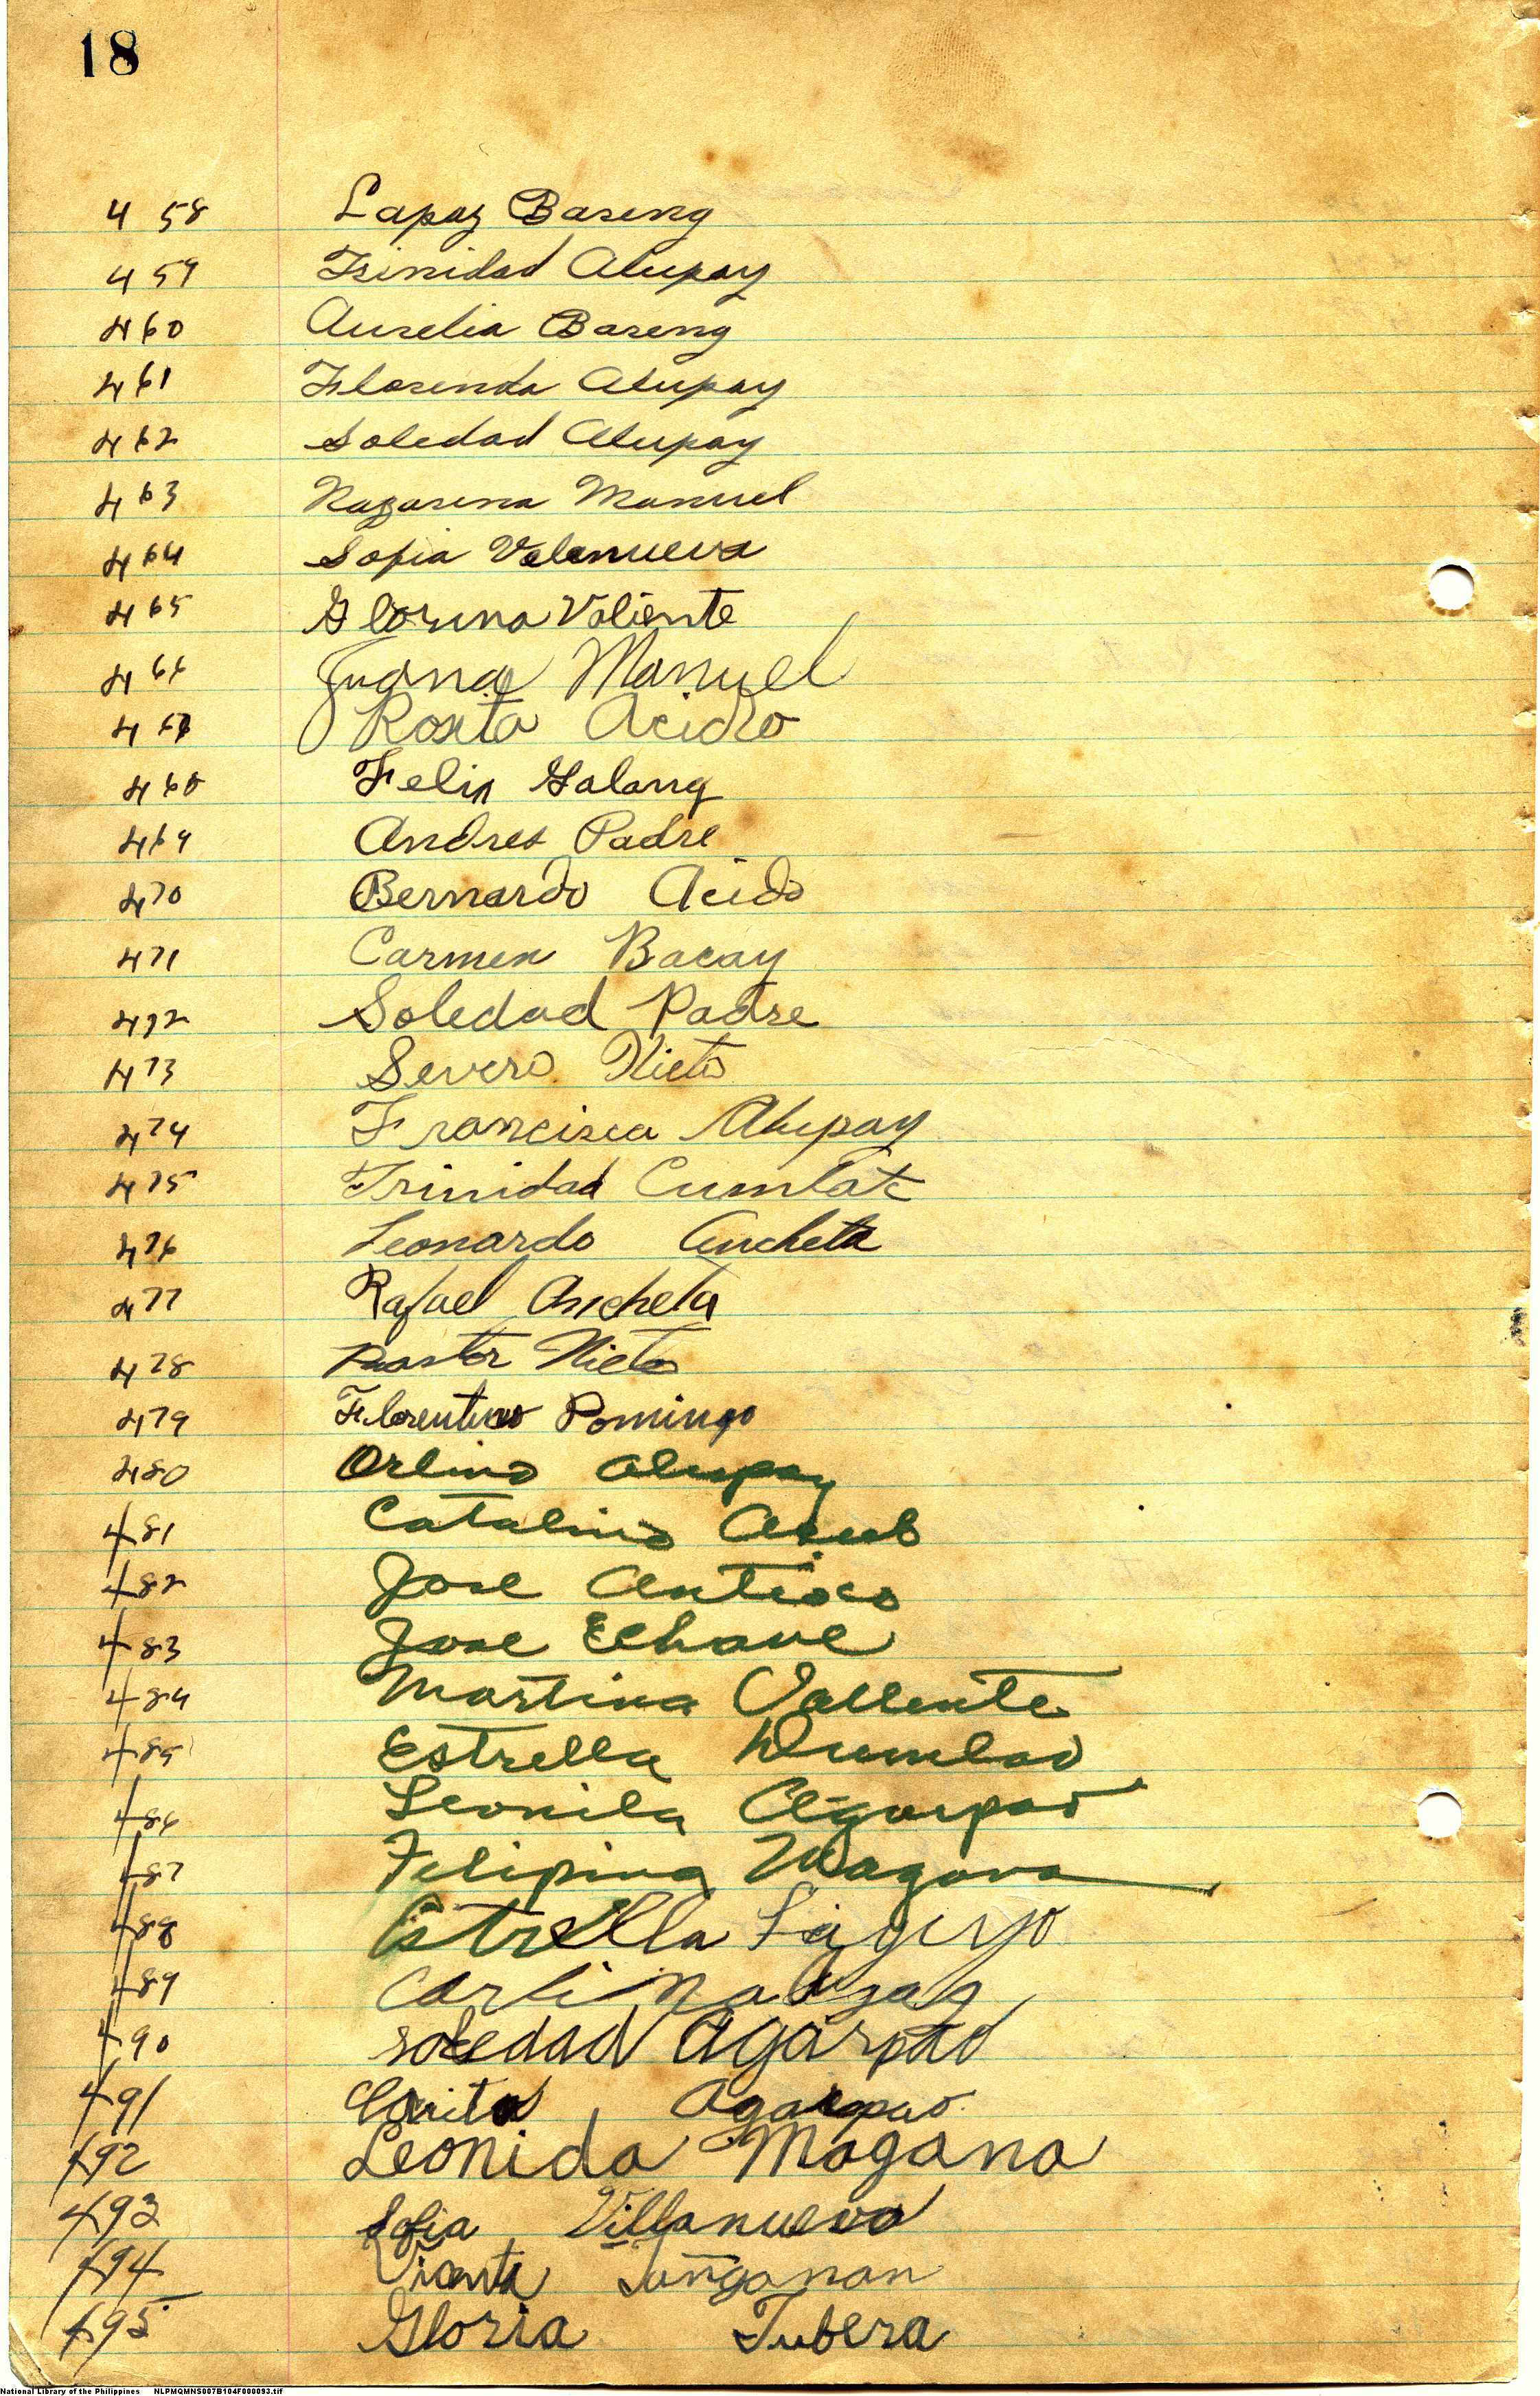 18
458 Lapaz Bareng
459 Trinidad Alupay
460 Aurelia Bareng
461 Florenda Alupay
462 Soledad Alupay
463 Nazarena Manuel
464 Sofia
465 Valiente
466 Juana Manuel
467 Rosita Acido
468 Felix Galang
469 Andres Padre
470 Bernardo Acido
471 Carmen Bacay
472 Soledad Padre
473 Severo Nieto
474 Francisca Alupay
475 Trinidad Cumlat
476 Leonardo Ancheta
477 Rafael Ancheta
478 Pastor Nieto
479 Florentino Domingo
480 Orlino Alupay
481 Catalino
482 Jose Antioco
483 Jose Echave
484 Martina Vallente
485 Estrella Dumlao
486 Leonila Agarpao
487 Felipina Magana
488 Estrella
489
490 Soledad Agarpao
491 Agarpao
492 Leonida Magana
493 Sofia Villanueva
494 Vicenta
495 Gloria Tubera
National Library of the Philippines NLPMQMNS007B104F000093.tif